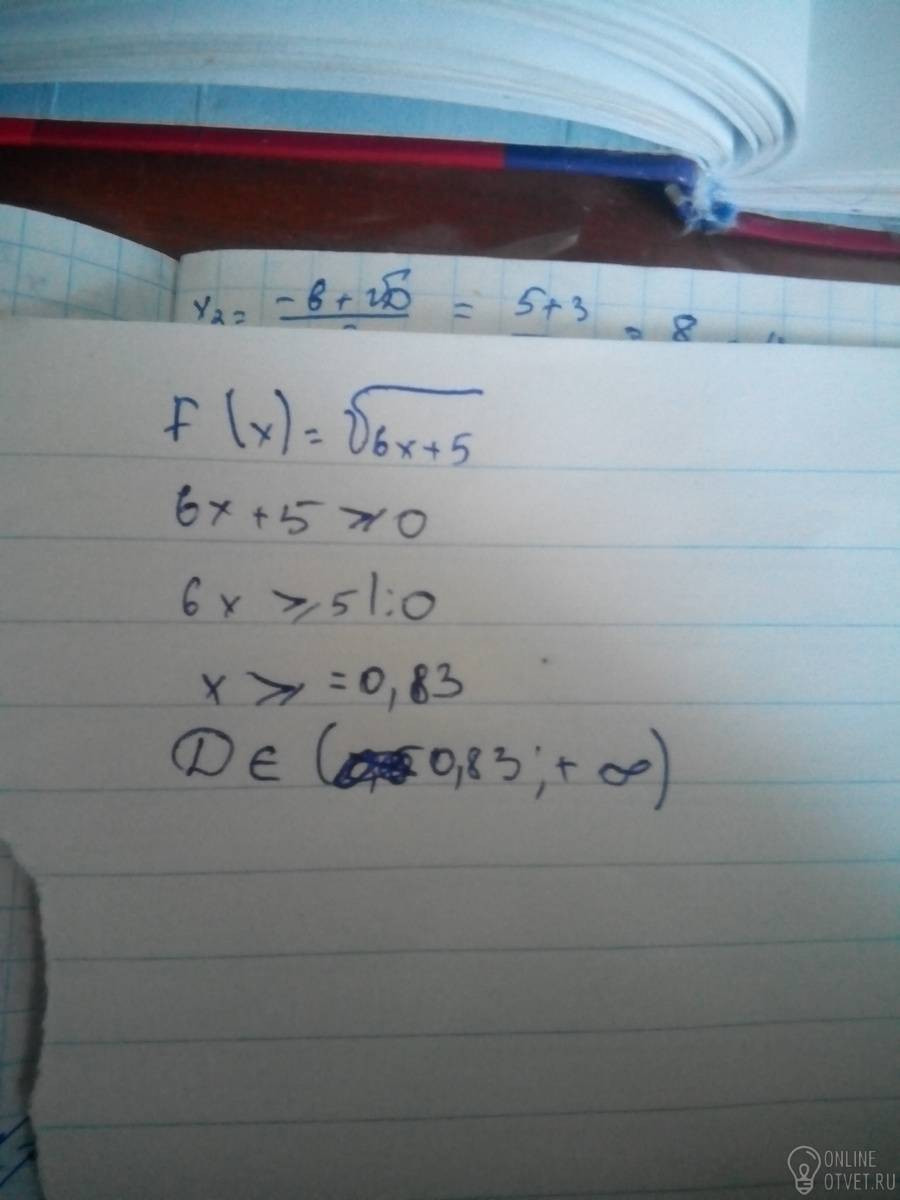 x₂ = -b + √D = 5+3 = 8
F(x) = √6x+5
6x + 5 ⩾ 0
6x ⩾ 5 |:0
x ⩾ = 0,83
D ∈ ( 0,83 ; + ∞)
ONLINE
OTVET.RU